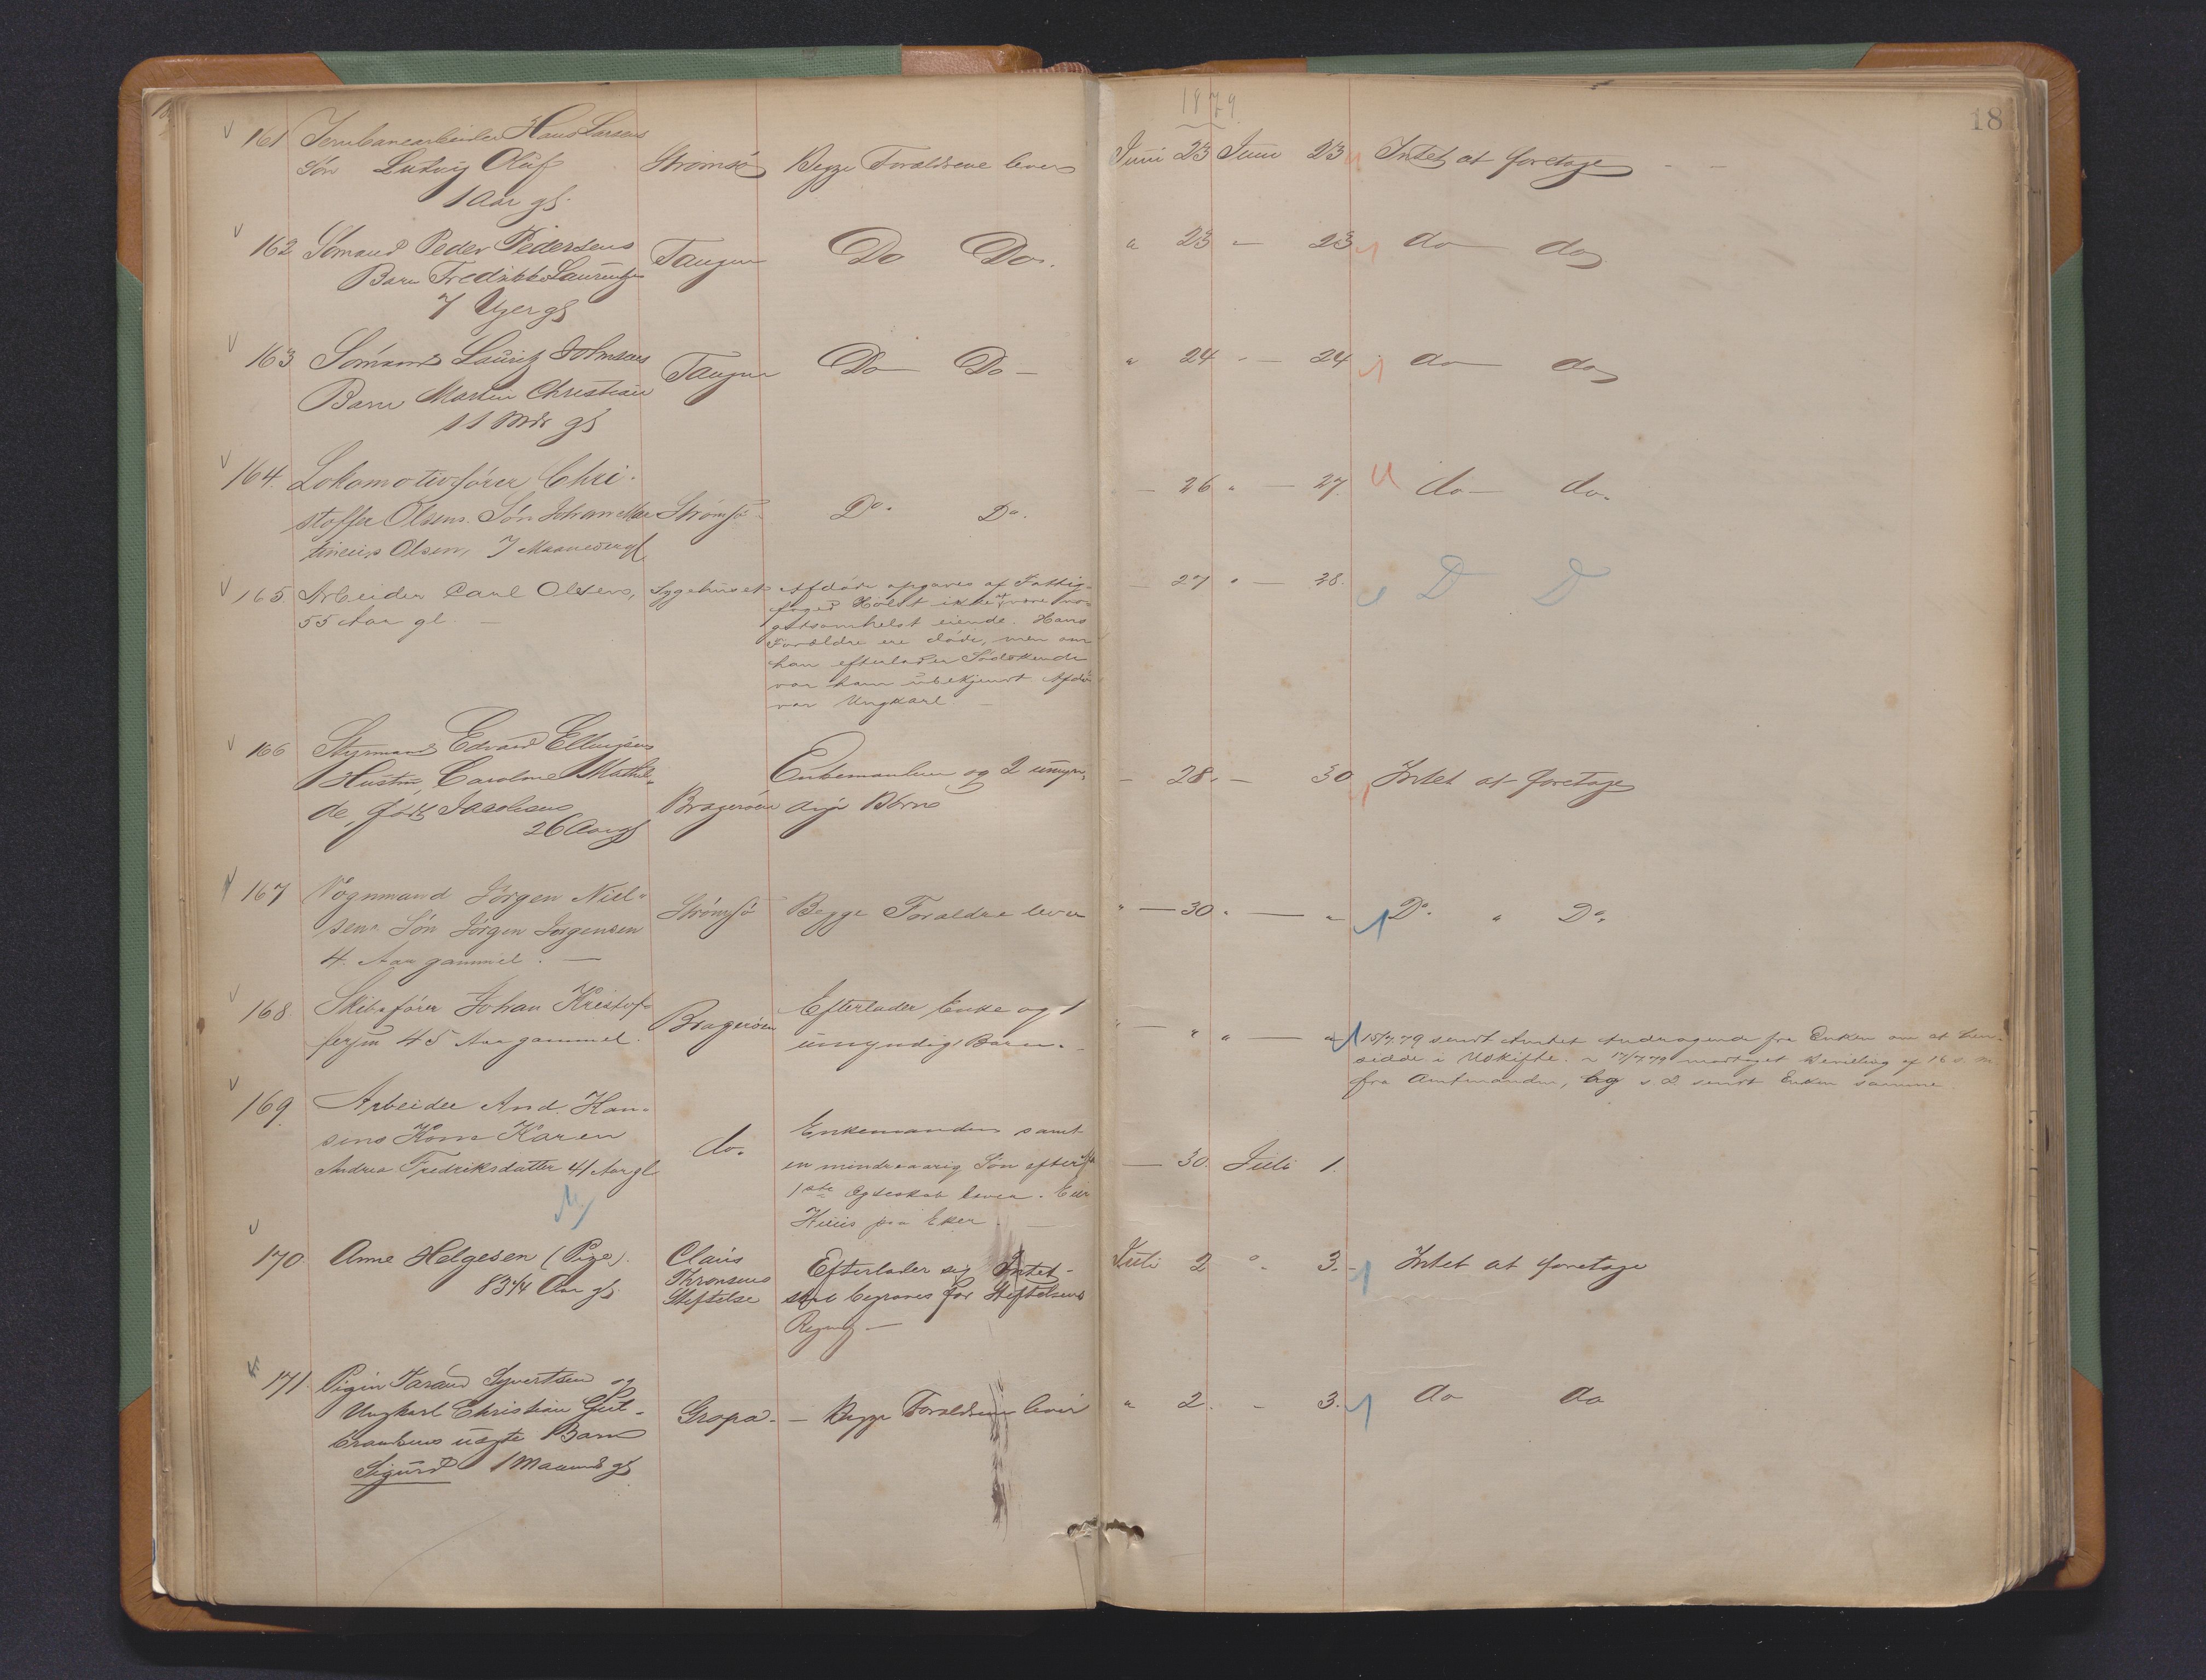 1879
18
161 Jernbanearbeider Hans Larsens
Søn Ludvig Oluf
1 Aar gl.
Strømsø
Begge Forældrene lever
Juni 23 Juni 23 Intet at foretage
162 Sømand Peder Pedersens
Barn Fredrikke
7 Uger gl
Tangen
Do Do.
" 23 — 23 do do
163 Sømand Lauritz Johnsens
Barn Martin Christian
11 Mdr gl
Tangen
Do Do —
" 24 " — 24 do do
164. Lokomotivfører Chri-
stoffer Olsens Søn Johan Mar
tinius Olsen, 7 Maaneder gl
Strømsø
Do. Do.
— 26 " — 27. do — do.
165. Arbeider Carl Olsen,
55 Aar gl. —
Sygehuset
Afdøde opgaves af Fattig-
foged Holst ikke at være no-
getsomhelst eiende. Hans
Forældre ere døde, men om
han efterlader Södskende
var ham ubekjendt. Afdø
var Ungkarl. —
— 27 " — 28. D D
166 Styrmand Edvard Ellingsens
Hustru, Caroline Mathil-
de, født Jacobsen
26 Aar gl
Bragerøen
Enkemanden og 2 umyn-
dige Børn
— 28. — 30 Intet at foretage
167 Vognmand Jörgen Niel-
sens Sön Jörgen Jörgensen
4. Aar gammel. —
Strømsø
Begge Forældre lever
" — 30. — " Do. " Do.
168. Skibsfører Johan Kristof-
fersen 45 Aar gammel.
Bragerøen
Efterlader Enke og 1
umyndigt Barn.
" — " " — " 15/7.79 sendt Amtet Andragende fra Enken om at hen-
sidde i Uskifte. 17/7.79 modtaget Bevilling af 16 s. M.
fra Amtmanden, og s. D. sendt Enken samme
169. Arbeider And. Han-
sens Kone Karen
Andrea Fredriksdatter 41 Aar gl
do.
Enkemanden samt
en mindreaarig Søn efter
1ste Egteskab lever. Eier
Huus paa Eker. —
— 30. Juli 1.
170 Anne Helgesen (Pige).
83 1/4 Aar gl.
Claus
Thronsens
Stiftelse
Efterlader sig Intet —
skal begraves for Stiftelsens
Regning —
Juli 2 " 3. — Intet at foretage
171. Pigen Syvertsen og
Ungkarl Christian Gul-
brandsens uægte Barn
Sigurd 1 Maaned gl
Gropa. —
Begge Forældrene lever
" 2. — 3. do do